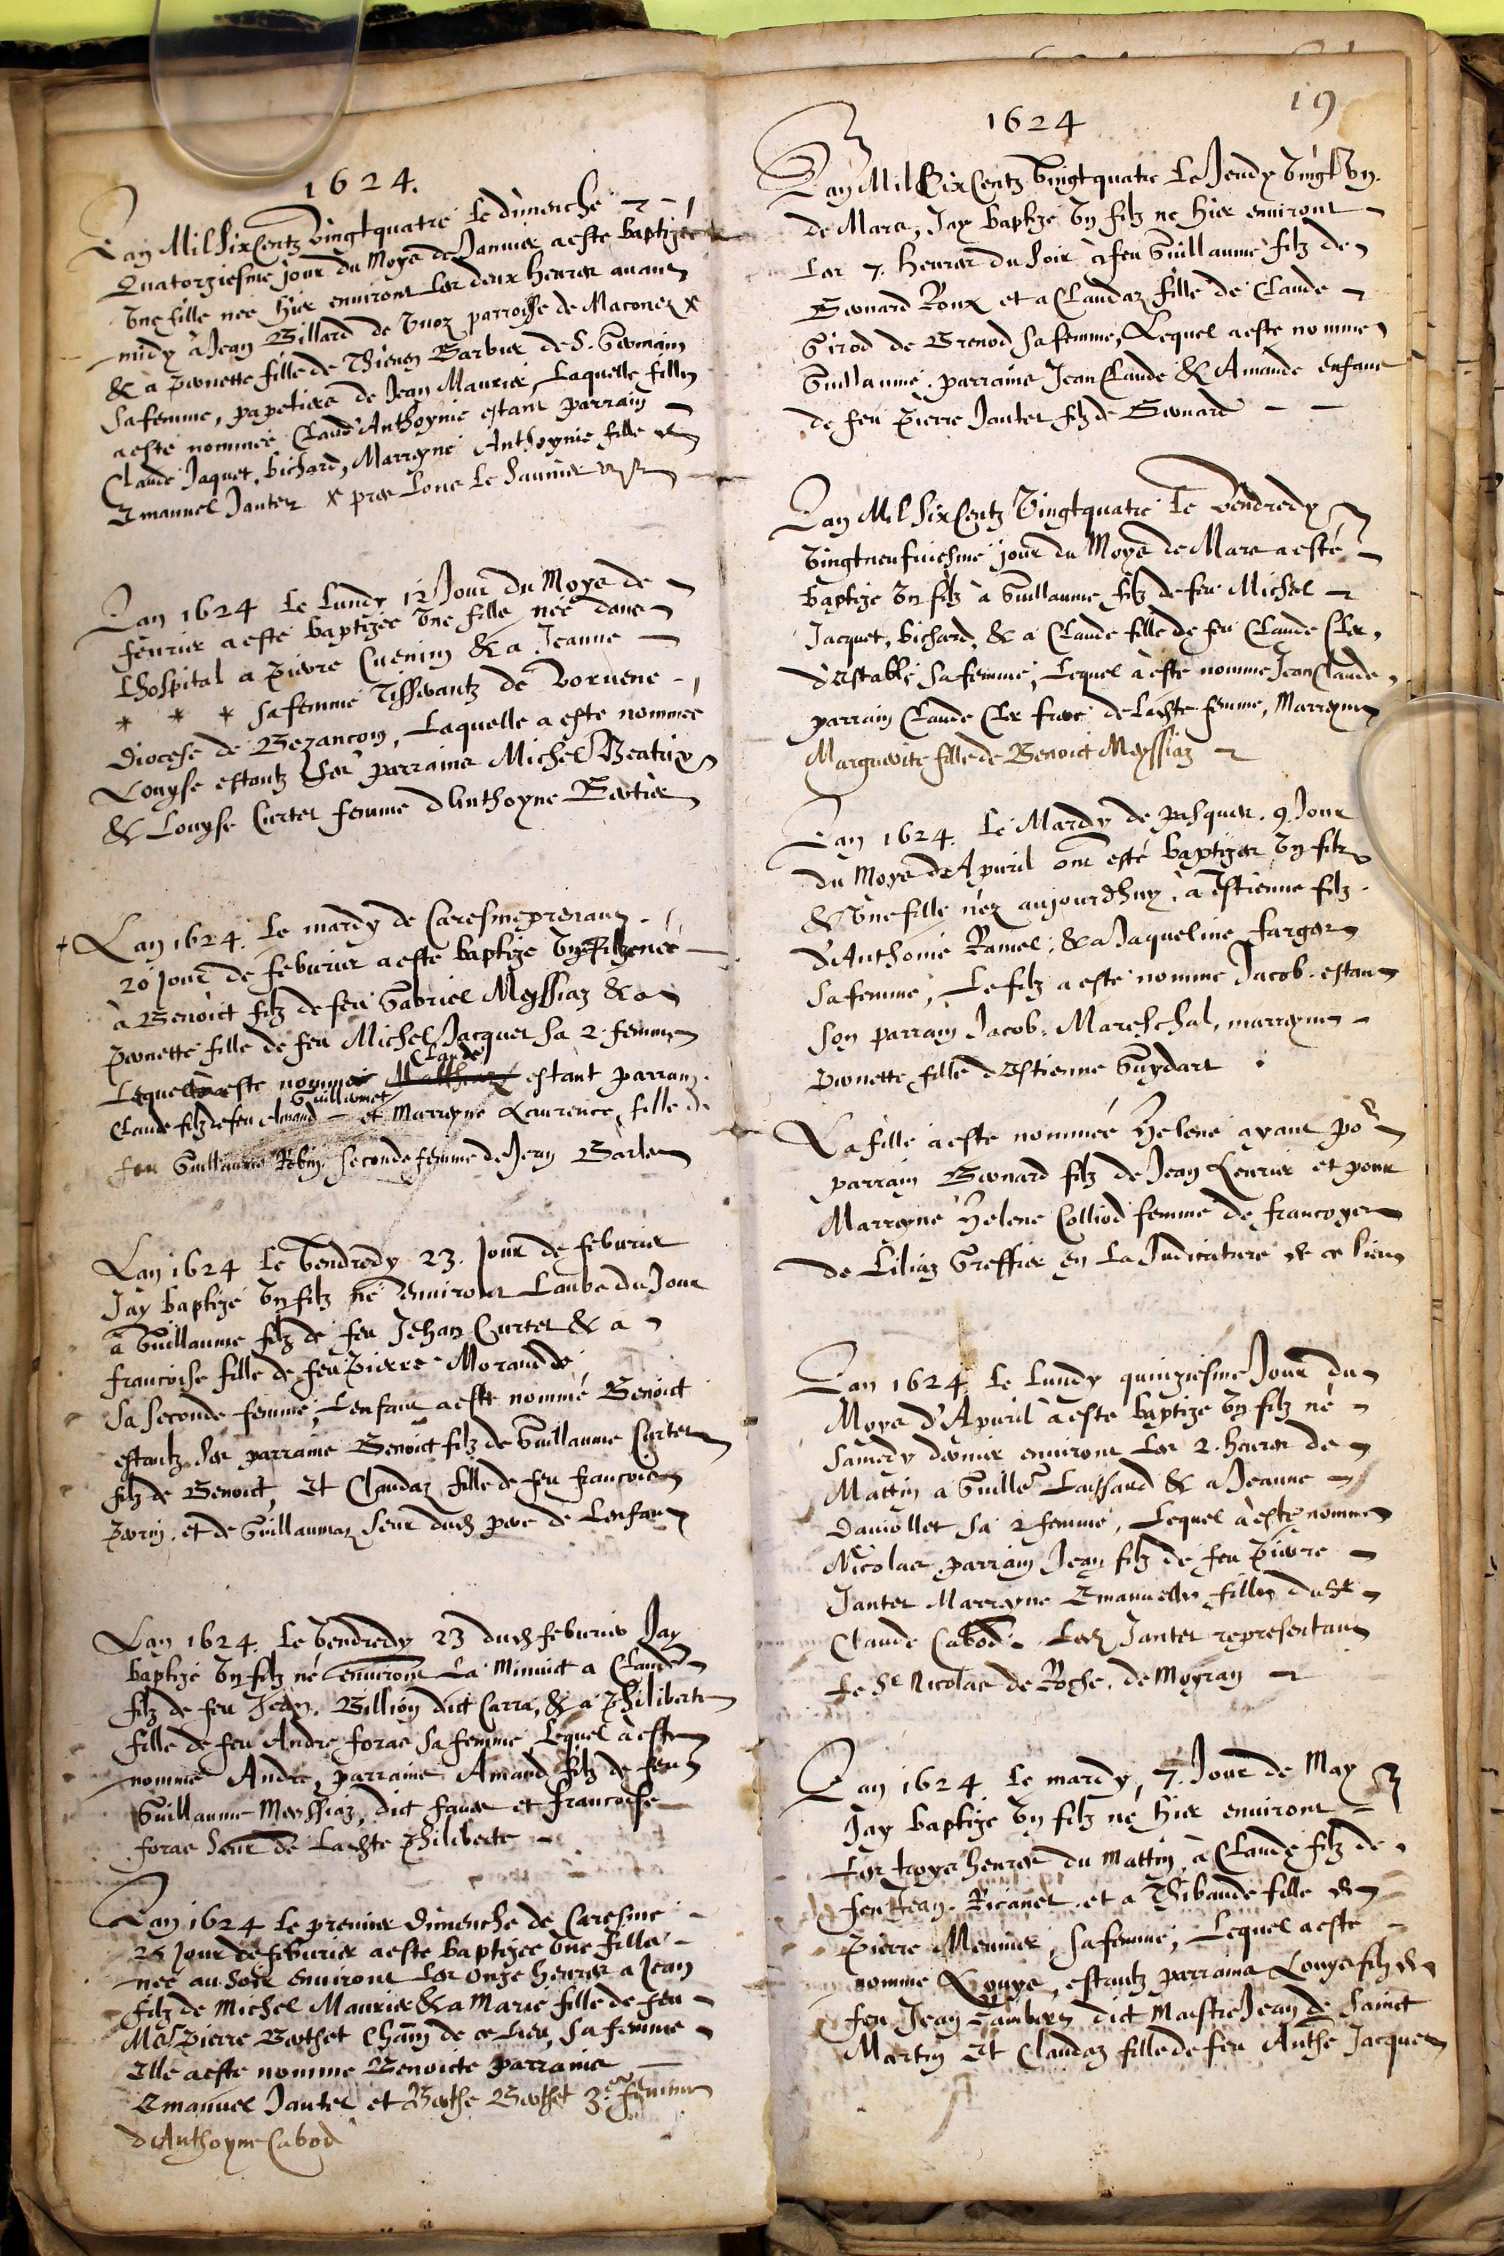 1624.
Lan Mil Six Centz Vingtquatre le dimenche
Quatorziesme jour du Moys de Januier a esté baptizée
Vne fille née hier enuiront les deux heures auant
midy à Jean Billard de Vuoz parroisse de Maconez x
& à Pernette fille de Thieuen Barbier de S. Germain
sa femme, papetiers de Jean Maurier, Laquelle fille
a esté nommée Claud'Anthoynie estant parrain
Claude Jaquet, bichard, Marreyne Anthoynie fille de
Emanuel Jantet x pres Lons le Saunier
Lan 1624 le Lundy 12 Jour du Moys de
feburier a esté baptizée Vne fille née dans
Lhospital a Pierre Cuenin & a Jeanne
* * * sa femme Tisserantz de
Diocese de Bezancon, Laquelle a esté nommée
Louyse estantz ses parrains Michel Beatrix
& Louyse Curtet femme d'Anthoyne Bertier
+ Lan 1624. Le mardy de Caresmeprenant.
20 jour de feburier a esté baptizé Vn filz né
à Benoict filz de feu Gabriel Meyssiaz & a
Pernette fille de feu Michel Jacquet sa 2. femme
Claude
Lequel a esté nommé estant parrain
Guillermet
Claude filz de feu Amand et Marreyne Laurence, fille de
feu Guillaume Robin seconde femme de Jean
Lan 1624 le Vendredy 23. Jour de feburier
Jay baptizé Vn filz né enuiront Laube du Jour
a Guillaume filz de feu Jehan Curtet & a
francoise fille de feu Pierre Morand
sa seconde femme, Lenfant a esté nommé Benoict
estantz ses parrains Benoict filz de Guillaume Curtet
filz de Benoict, Et Claudaz fille de feu francois
Perrin. et de Guillaumaz seur dudt pere de Lenfant
Lan 1624. le Vendredy 23 dudt feburier Jay
baptizé Vn filz né enuiront La Minuict a Claude
filz de feu Jean. Billion dict Carra, & a Philiberte
fille de feu Andre foras sa femme Lequel a esté
nommé Andre, parrains Amand filz de feu
Guillaume Meyssiaz, dict faure et francoise
foras seur de Ladte Philiberte
Lan 1624 le premier dimenche de Caresme
25 Jour de feburier a esté baptizée Vne fille
née au soir enuiront les onze heures a Jean
filz de Michel Maurier & a Marie fille de feu
Me Pierre Berthet Chastn de ce Lieu, sa femme
Elle a esté nommé Benoicte parrains
Emanuel Jantet et Berthe Berthet 3e femme
d'Anthoyne Cabod
19
1624
Lan Mil Six Centz Vingtquatre Le Jeudy Vingt Vn.
de Mars, Jay baptizé Vn filz né hier enuiront
Les 7. heures du soir à feu Guillaume filz de
Bernard Roux et a Claudaz fille de Claude
Girod de Brenod sa femme, Lequel a esté nommé
Guillaume. parrains Jean Claude & Amande enfans
de feu Pierre Jantet filz de Bernard
Lan Mil Six Centz Vingtquatre le Vendredy
Vingtneufuiesme jour du Moys de Mars a esté
baptizé Vn filz à Guillaume filz de feu Michel
Jacquet, bichard, & a Claude fille de feu Claude Cler,
d'Estable sa femme, Lequel à esté nommé Jean Claude
parrain Claude Cler frere de Ladte femme, Marreyne
Marguerite fille de Benoict Meyssiaz
Lan 1624. le Mardy de Pasques. 9. Jour
du Moys d'Apuril ont esté baptizez Vn filz
& Vne fille néz aujourdhuy, à Estienne filz
d'Anthoine Ramel, & a Jaqueline farges
sa femme, Le filz a esté nommé Jacob. estant
son parrain Jacob. Mareschal, marreyne
Pernette fille d'Estienne Guydart
La fille a esté nommée Helene ayant por
parrain Bernard filz de Jean Leurier et pour
Marreyne Helene Colliod femme de francoys
de Liliaz Greffier en La Judicature de ce lieu
Lan 1624. le Lundy quinziesme Jour du
Moys d'Apuril a esté baptizé Vn filz né
samedy dernier enuiront les 2. heures de
Mattin a Guille Laissard & a Jeanne
Dauiollet sa 2 femme, Lequel à esté nommé
Nicolas, parrain Jean filz de feu Pierre
Jantet Marreyne Emanuelle fille du Sr
Claude Cabod. Ledt Jantet representant
le Sr Nicolas de Roche. de Moyran
Lan 1624 le mardy, 7. Jour de May
Jay baptizé Vn filz né hier enuiront
les troys heures du mattin, à Claude filz de
feu Jean. Ricanet, et a Thibaude fille de
Pierre Monnier, sa femme, Lequel a esté
nommé Louys, estantz parrains Louys filz de
feu Jean Lambert dict Maistre Jean de Sainct
Martin Et Claudaz fille de feu Anthe Jacquet